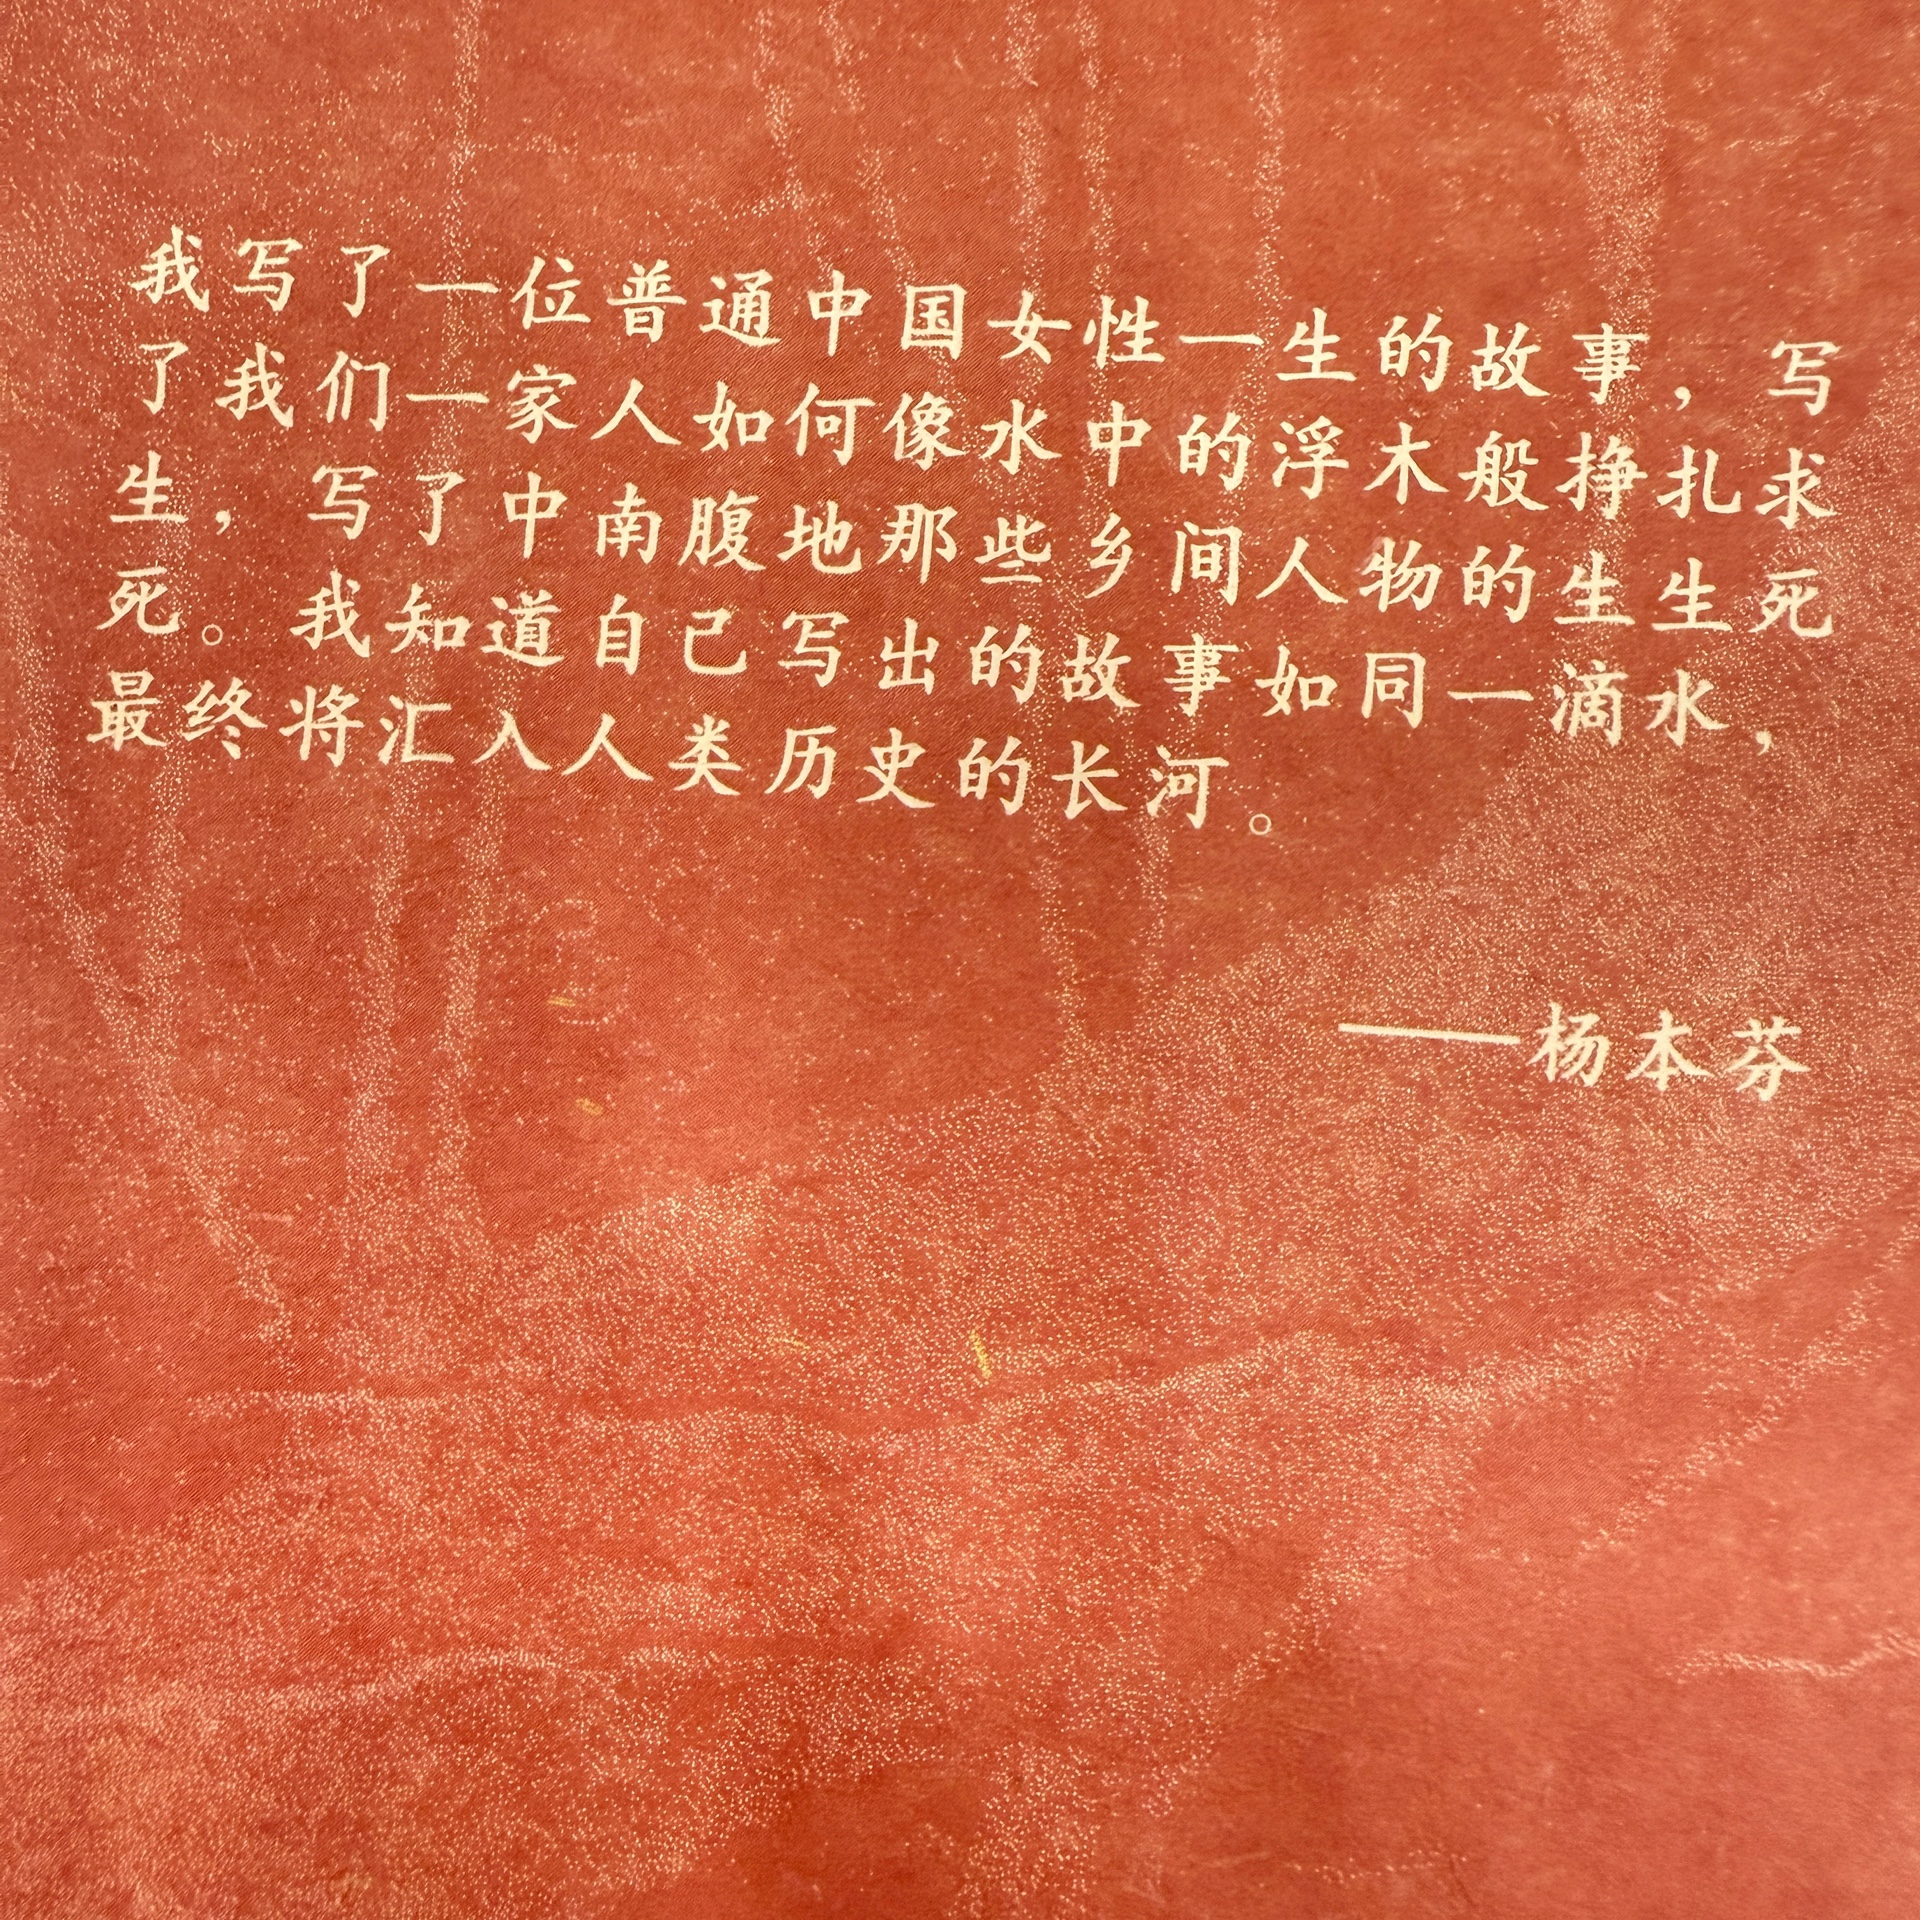 我写了一位普通中国女性一生的故事，写
了我们一家人如何像水中的浮木般挣扎求
生，写了中南腹地那些乡间人物的生生死
死。我知道自己写出的故事如同一滴水，
最终将汇入人类历史的长河。
——杨本芬